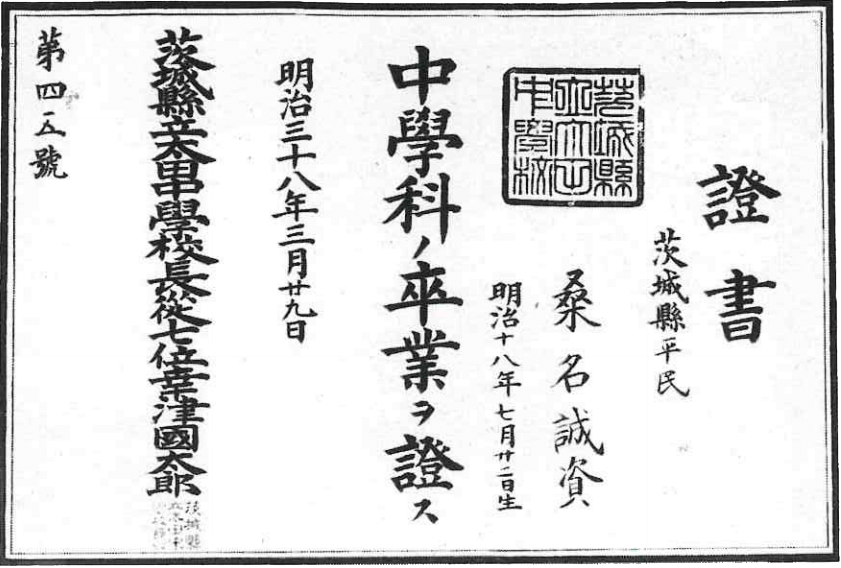 證書
茨城縣平民
桑名誠資
明治十八年七月廿二日生
茨城縣
立太田
中學校
中學科ノ卒業ヲ證ス
明治三十八年三月廿九日
茨城縣立太田中學校長從七位幸津國太郎
第四五號